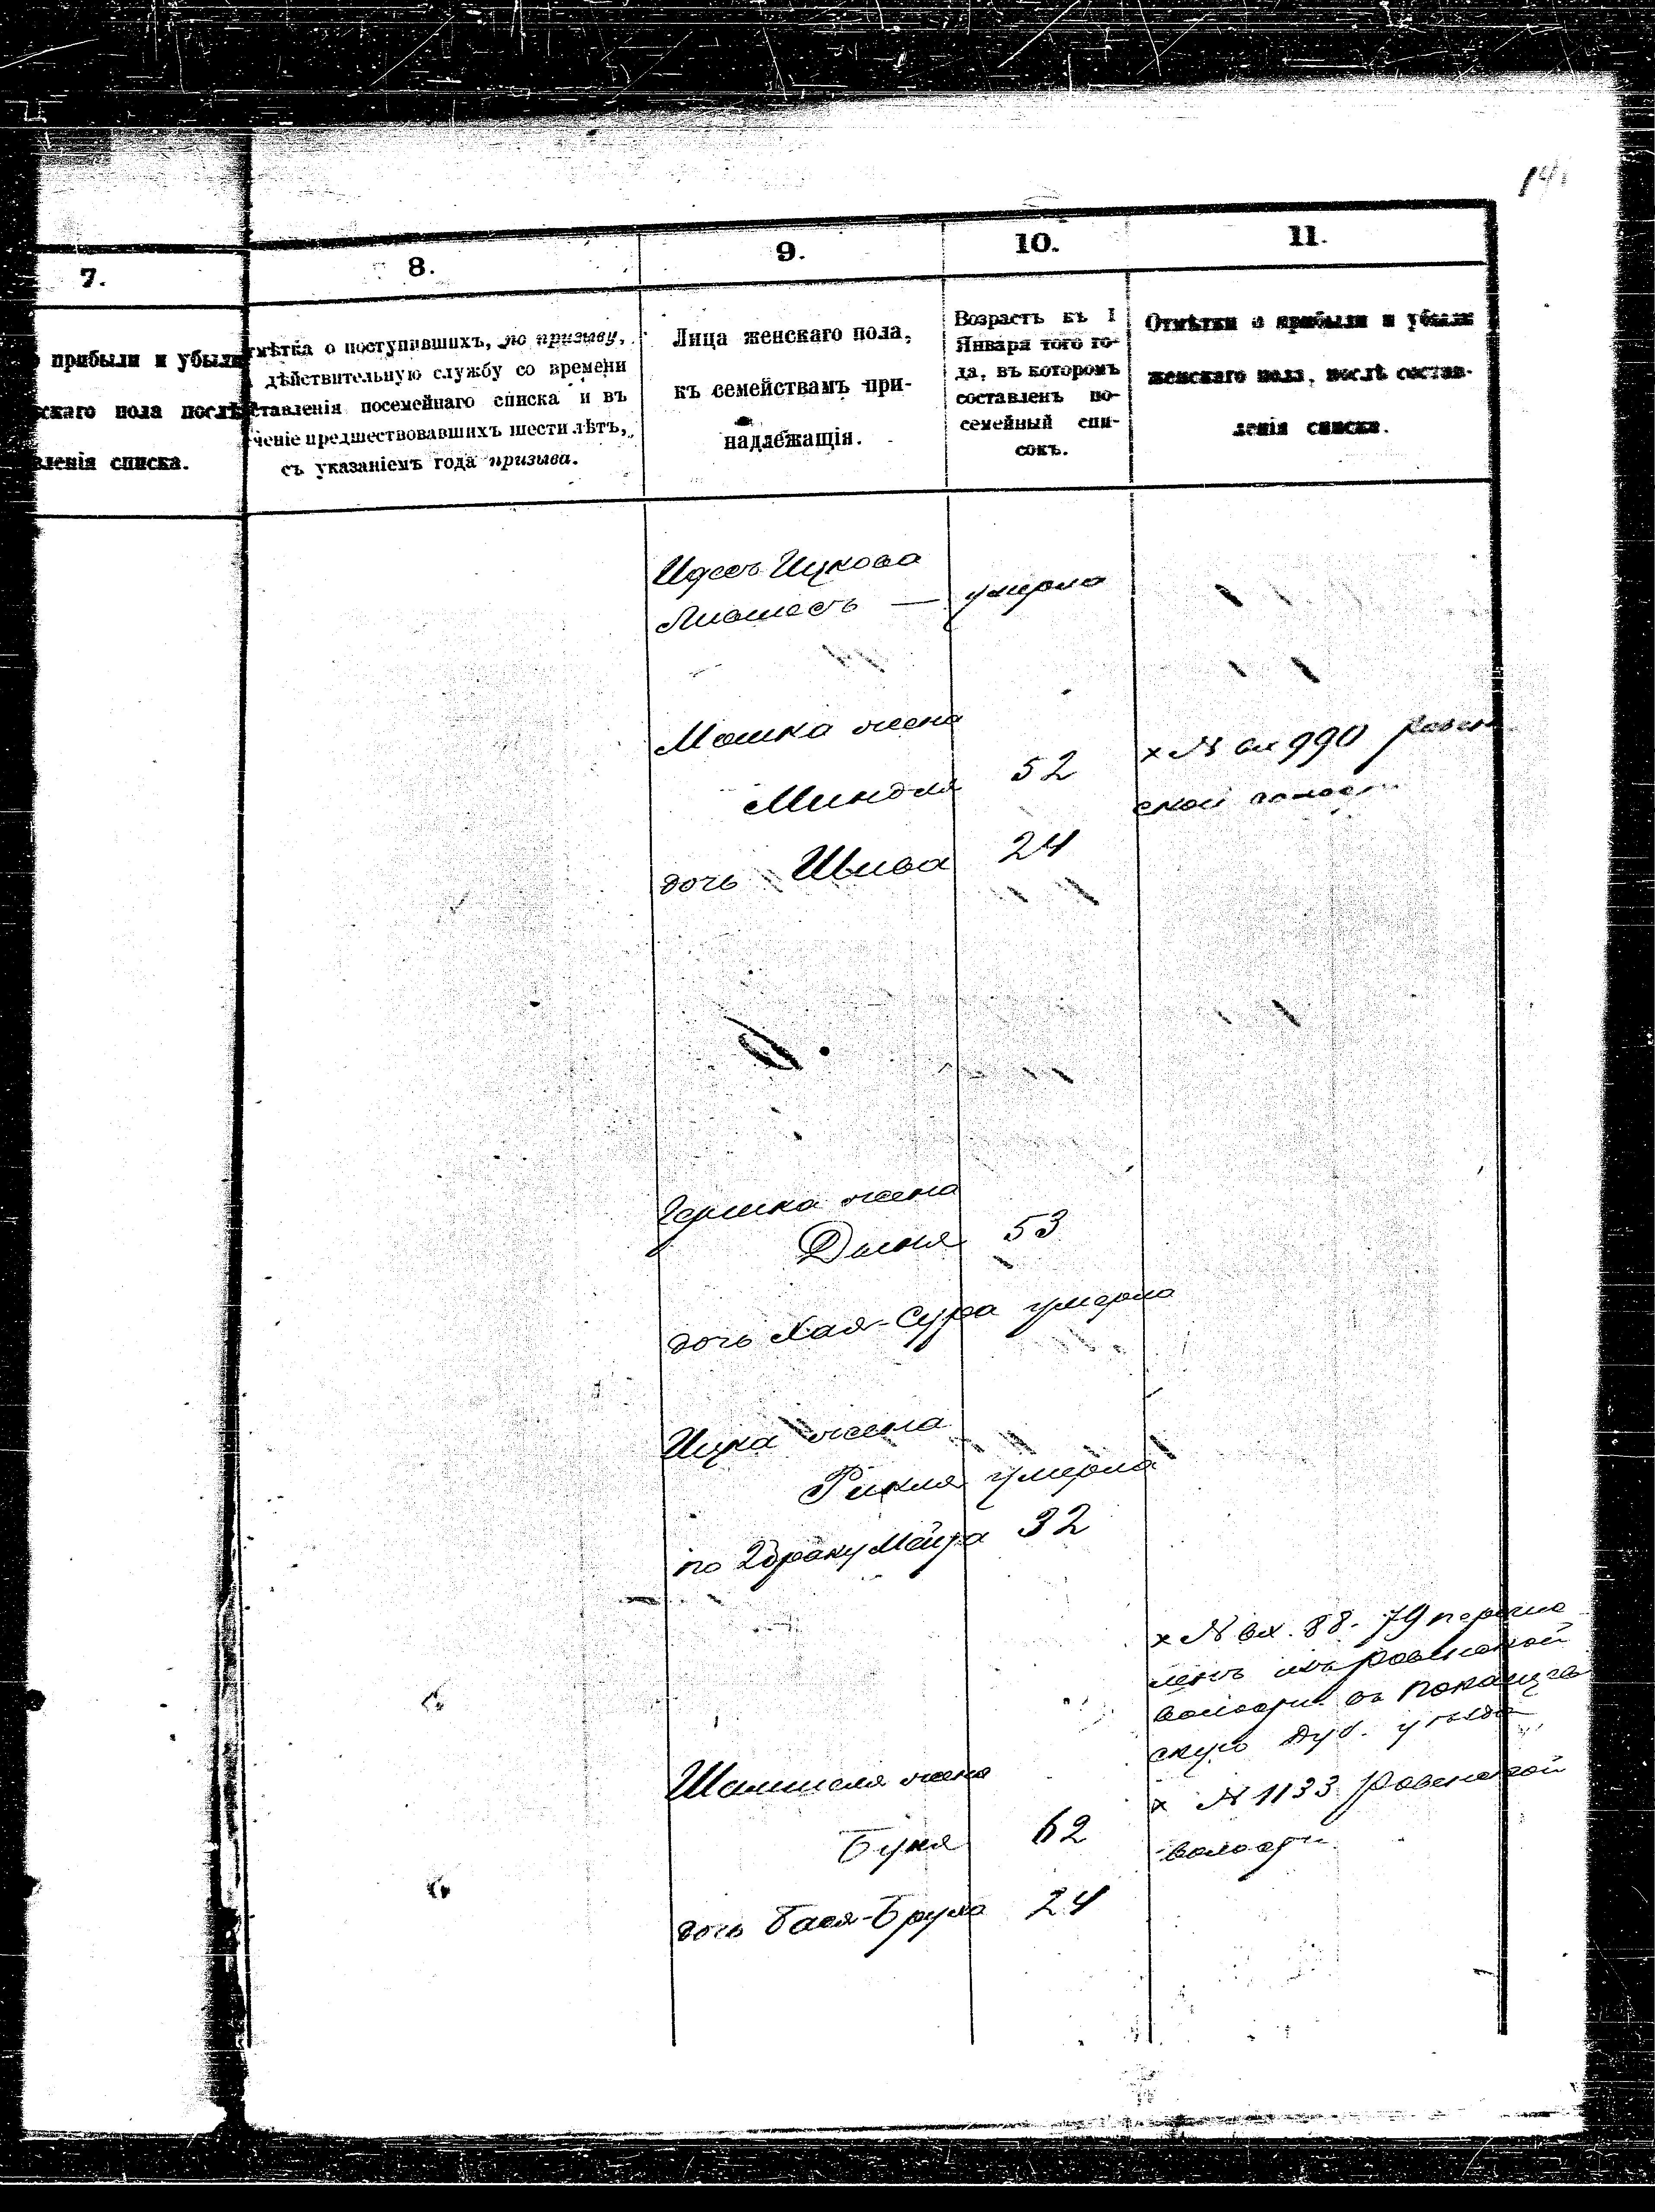 7.
8.
9.
10.
11.
прибыли и убыли
скаго пола послѣ
вленія списка.
мѣтка о поступившихъ, по призыву,
дѣйствительную службу со времени
ставленія посемейнаго списка и въ
ченіе предшествовавшихъ шести лѣтъ,
съ указаніемъ года призыва.
Лица женскаго пола,
къ семействамъ при-
надлежащія.
Возрастъ къ 1
Января того го-
да, въ которомъ
составленъ по-
семейный спи-
сокъ.
Отмѣтки о прибыли и убыли
женскаго пола, послѣ состав-
ленія списка.
Ицкова
— умерла
Мошка жена
Миндля 52
х № вх 990
ской
дочь 24
Гершка жена
53
дочь Хая-Сура умерла
Ицка жена
Рикля умерла
по 2 браку 32
х № вх. 88-79 перечис
ленъ изъ Ровенской
волости въ
скую Дуб. уѣзда
Шмишеля жена
х № 1133 Ровенской
Буня 62
волости
дочь Бася-Бруха 24